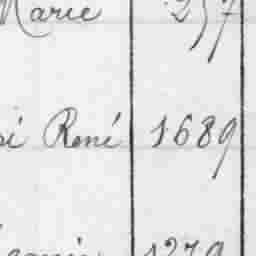 Marie 257
René 1689
1279